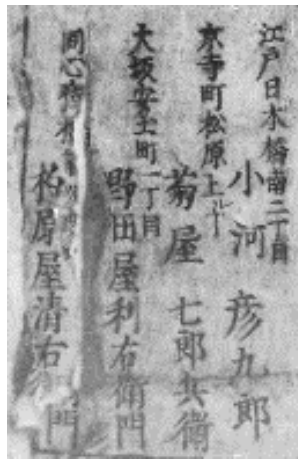 江戸日本橋南二丁目
小河彦九郎
京寺町松原上ル
菊屋七郎兵衛
大坂安土町一丁目
野田屋利右衛門
同心斎橋
柏原屋清右衛門